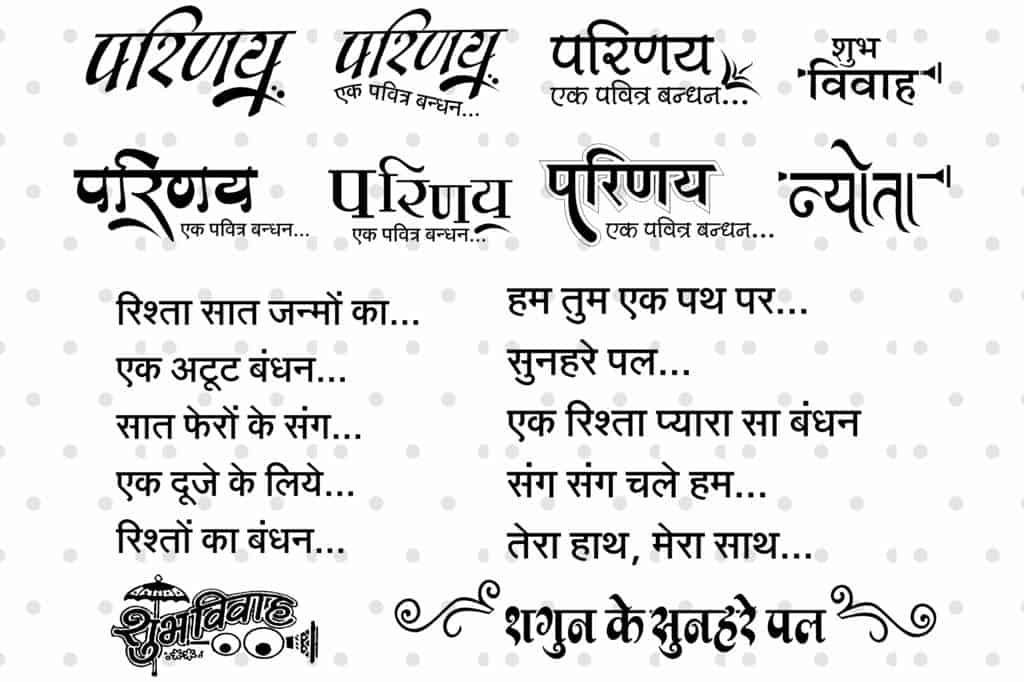 परिणय
परिणय
एक पवित्र बन्धन...
परिणय
एक पवित्र बन्धन...
शुभ
विवाह
परिणय
एक पवित्र बन्धन...
परिणय
एक पवित्र बन्धन...
परिणय
एक पवित्र बन्धन...
न्योता
रिश्ता सात जन्मों का...
एक अटूट बंधन...
सात फेरों के संग...
एक दूजे के लिये...
रिश्तों का बंधन...
हम तुम एक पथ पर...
सुनहरे पल...
एक रिश्ता प्यारा सा बंधन
संग संग चले हम...
तेरा हाथ, मेरा साथ...
शुभ विवाह
शगुन के सुनहरे पल